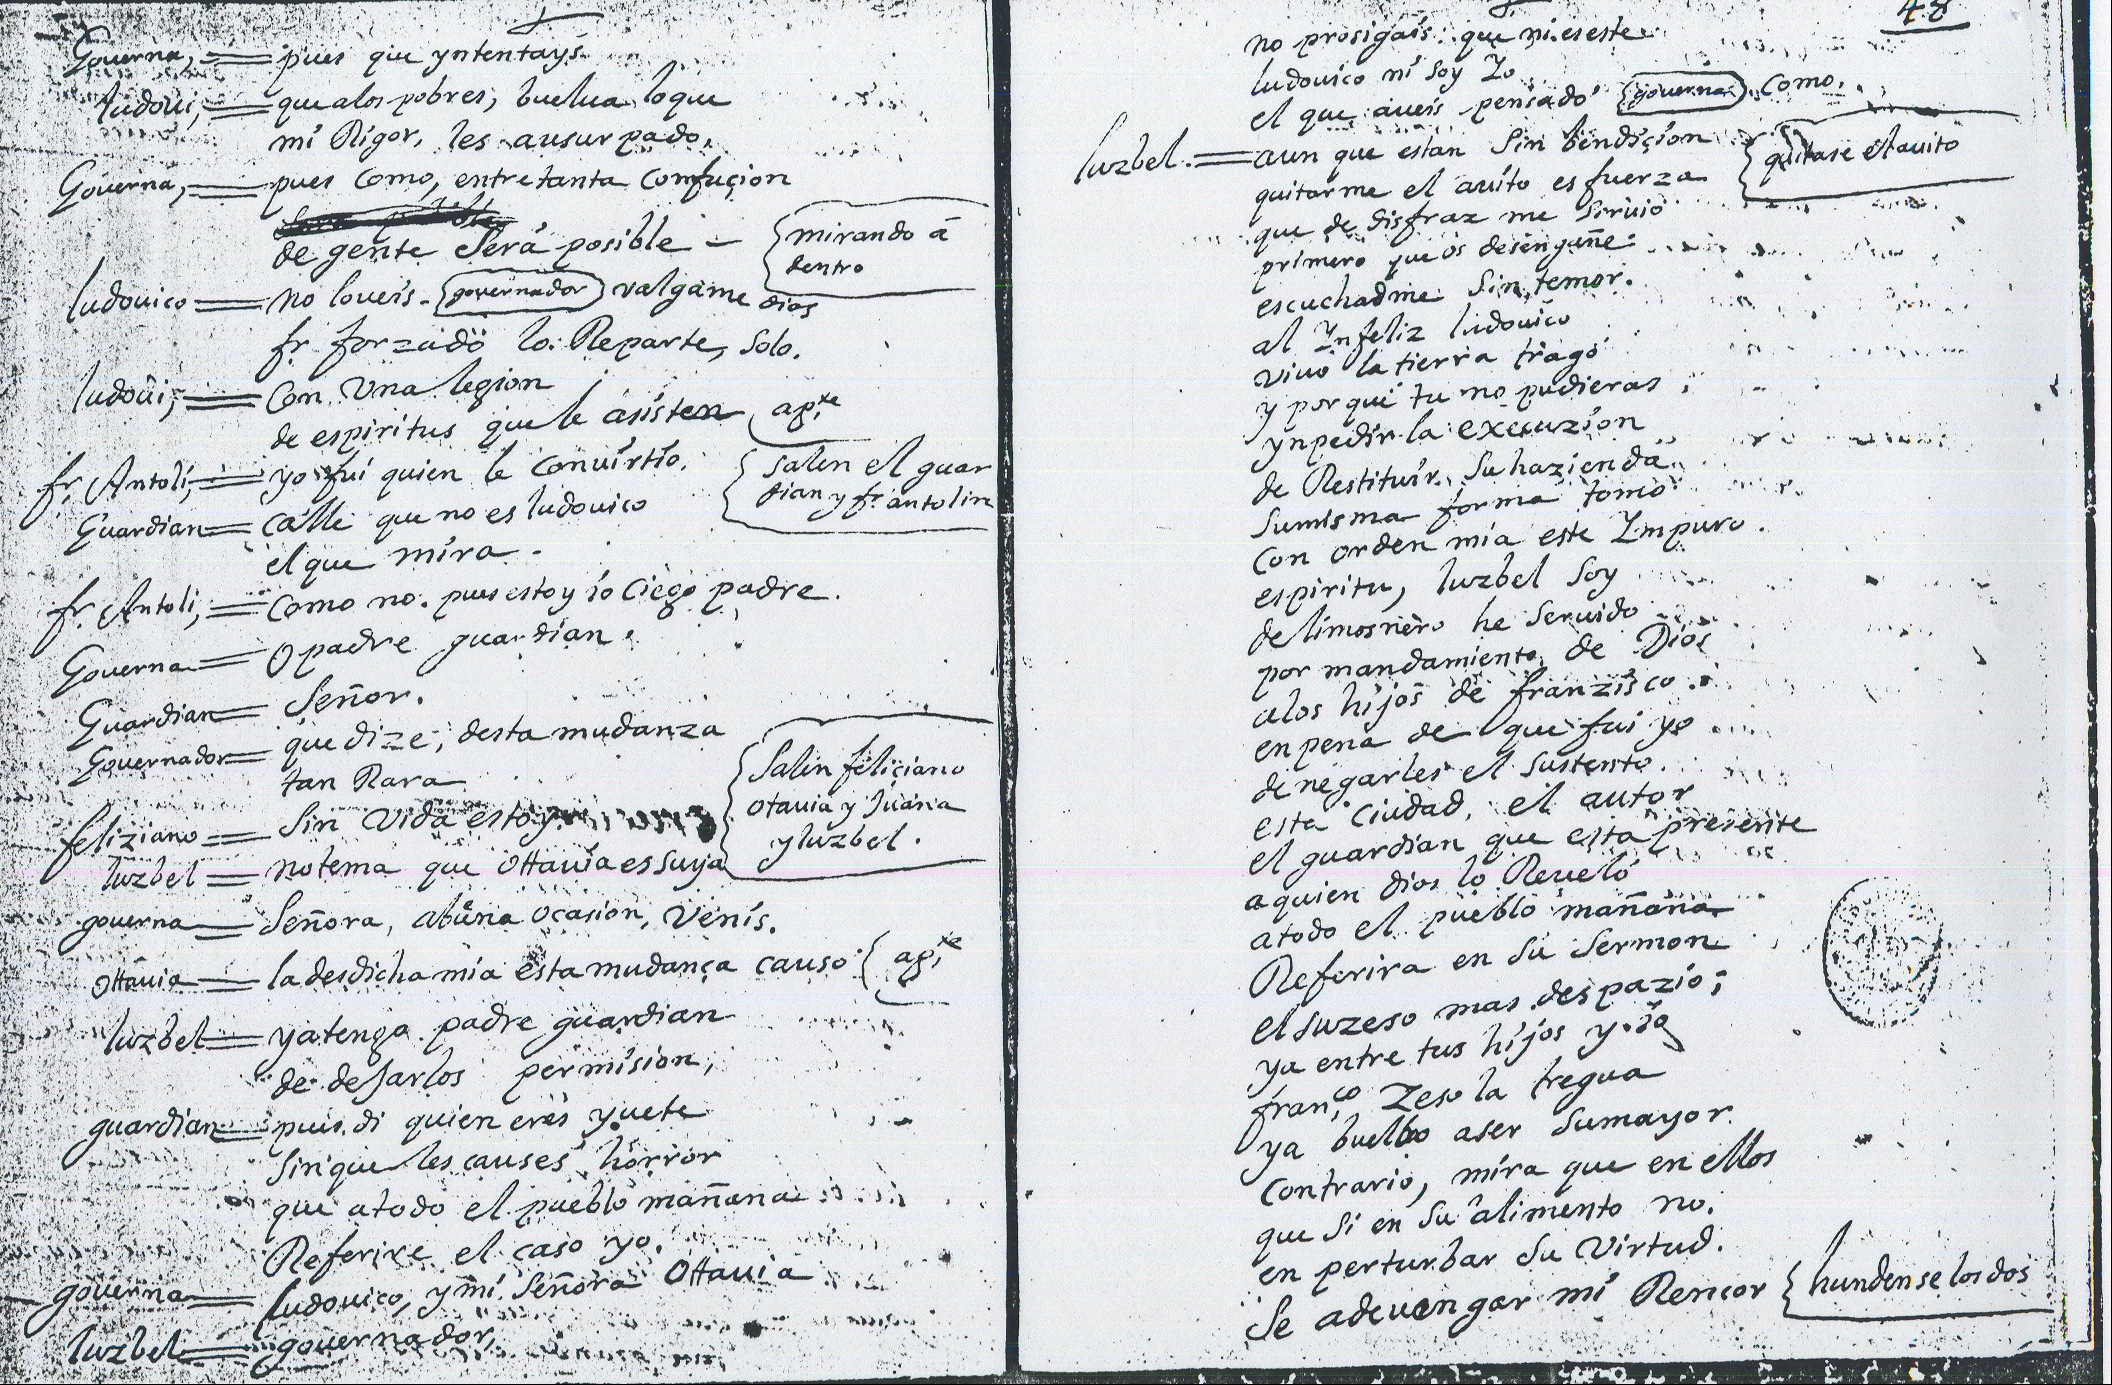 Governa, = pues que yntentays
ludoui, = que alos pobres, buelua lo que
mi Rigor, les a usurpado,
Governa, = pues como, entre tanta confuçion
de gente Será posible – {mirando á
dentro
ludouico = no loueis. {governador} valgame dios
fr forzado lo Reparte, solo.
ludoui, = Con Una legion
de espiritus que le asisten {apte
fr. Antoli, = yo fui quien le convirtio. {Salen el guar
dian y fr. antolin
Guardian = Calle que no es ludouico
el que mira.
fr. Antoli, = Como no. pues estoy io Ciego padre.
Governa = O padre guardian.
Guardian = Señor.
Governador = que dize, desta mudanza
tan Rara
feliziano = Sin Vida estoy {Salen feliçiano
otauia y Juana
y luzbel.
luzbel = no tema que Ottauia es suya
governa = Señora, abuena ocasion, Venis.
ottauia = la desdicha mia esta mudança causo {apte
luzbel = ya tengo padre guardian
de dejarlos permision,
guardian = pues di quien eres y uete
sin que les causes horror
que atodo el pueblo mañana
Referire el caso yo.
governa = ludouico, y mi Señora Ottauia
luzbel = governador,
48
no prosigais que ni es este
ludouico ni soy Yo
el que aueis pensado {governa} Como.
luzbel = aun que estan Sin bendiçion {quitase el auito
quitarme el auito es fuerza
que de disfraz me siruio
primero que os desengañe
escuchadme Sin temor.
al Ynfeliz ludouico
viuo la tierra tragó
y por que tu no pudieras
ynpedir la execuzion
de Restituir su hazienda
su misma forma tomó
Con orden mia este Ympuro
espiritu, luzbel soy
de limosnero he seruido
por mandamiento de Dios
a los hijos de franzisco
en pena de que fui yo
de negarles el sustento
esta Ciudad, el autor
el guardian que esta presente
a quien dios lo Reueló
a todo el pueblo mañana
Referira en su sermon
el suzeso mas despazio;
ya entre tus hijos y io
franco Zeso la tregua
ya buelbo a ser su mayor
Contrario, mira que en ellos
que si en su alimento no.
en perturbar su virtud.
Se a de uengar mi Rencor {hundense los dos